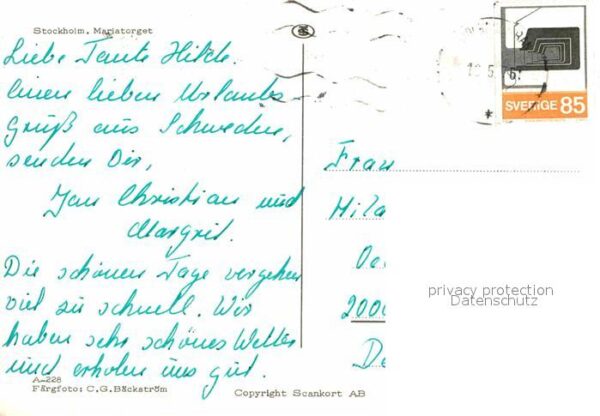 Stockholm. Mariatorget
Liebe Tante Hilde.
Einen lieben Urlaubs-
Gruß aus Schweden,
senden Dir,
Jan Christian und
Margrit.
Die schönen Tage vergehen
viel zu schnell. Wir
haben sehr schönes Wetter
und erholen uns gut.
A-228
Färgfoto: C.G. Bäckström
Copyright Scankort AB
SVERIGE 85
Frau
Hila
2000
privacy protection
Datenschutz